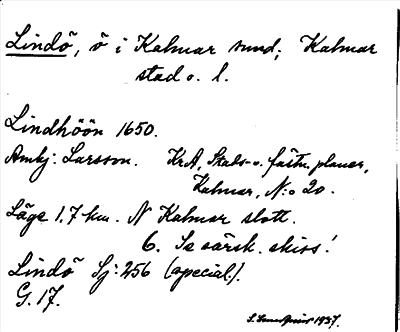 Lindö, ö i Kalmar sund; Kalmar
stad o. l.
Lindhöön 1650.
Amhj: Larsson. KrA, Stads- o. fästn. planer,
Kalmar, N:o 20.
Läge 1,7 km. N Kalmar slott.
6. Se särsk. skiss!
Lindö Sj: 256 (special).
G. 17.
1937.